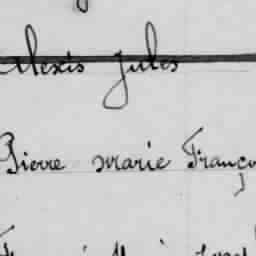 Alexis Jules
Pierre Marie Franço